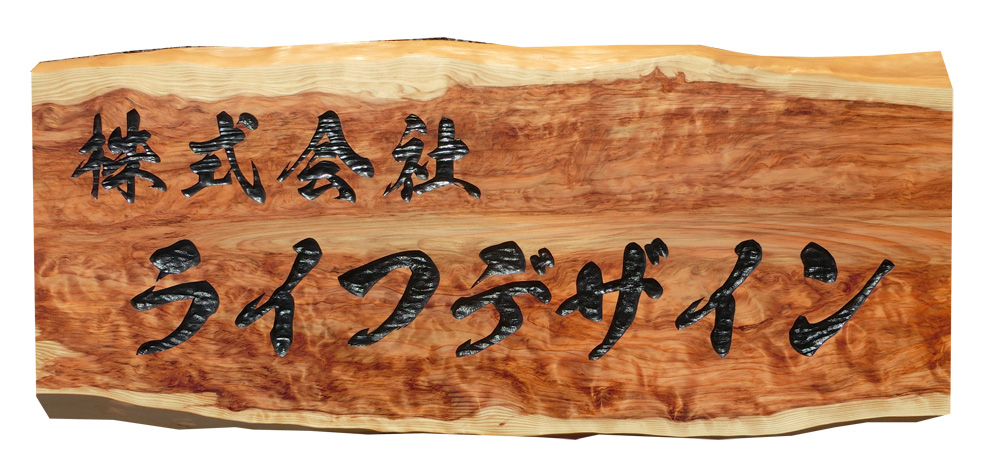 株式会社
ライフデザイン